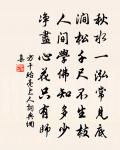 秋水一泓常見底
澗松千尺不生枝
人間學佛知多少
淨盡心花只有師
方干贈亮上人詩典網集